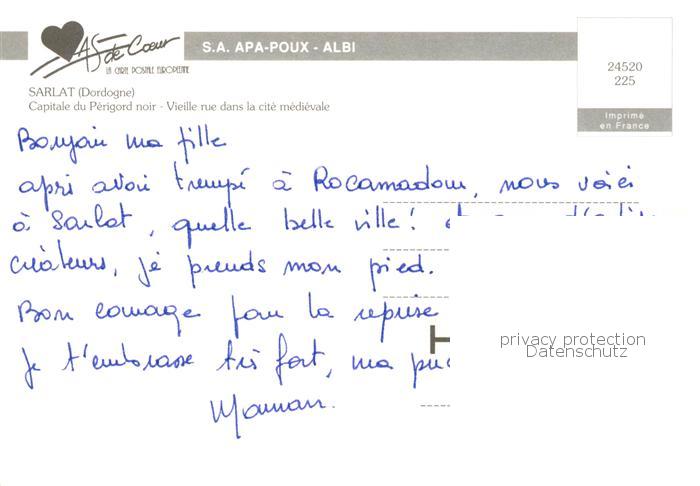 As de Cœur
LA CARTE POSTALE EUROPÉENNE
S.A. APA-POUX - ALBI
24520
225
Imprimé
en France
SARLAT (Dordogne)
Capitale du Périgord noir - Vieille rue dans la cité médiévale
Bonjour ma fille
apri avoir trempé à Rocamadour, nous voici
à Sarlat, quelle belle ville!
créateurs, je prends mon pied.
Bon courage pour la reprise
Je t'embrasse très fort, ma
Maman.
privacy protection
Datenschutz